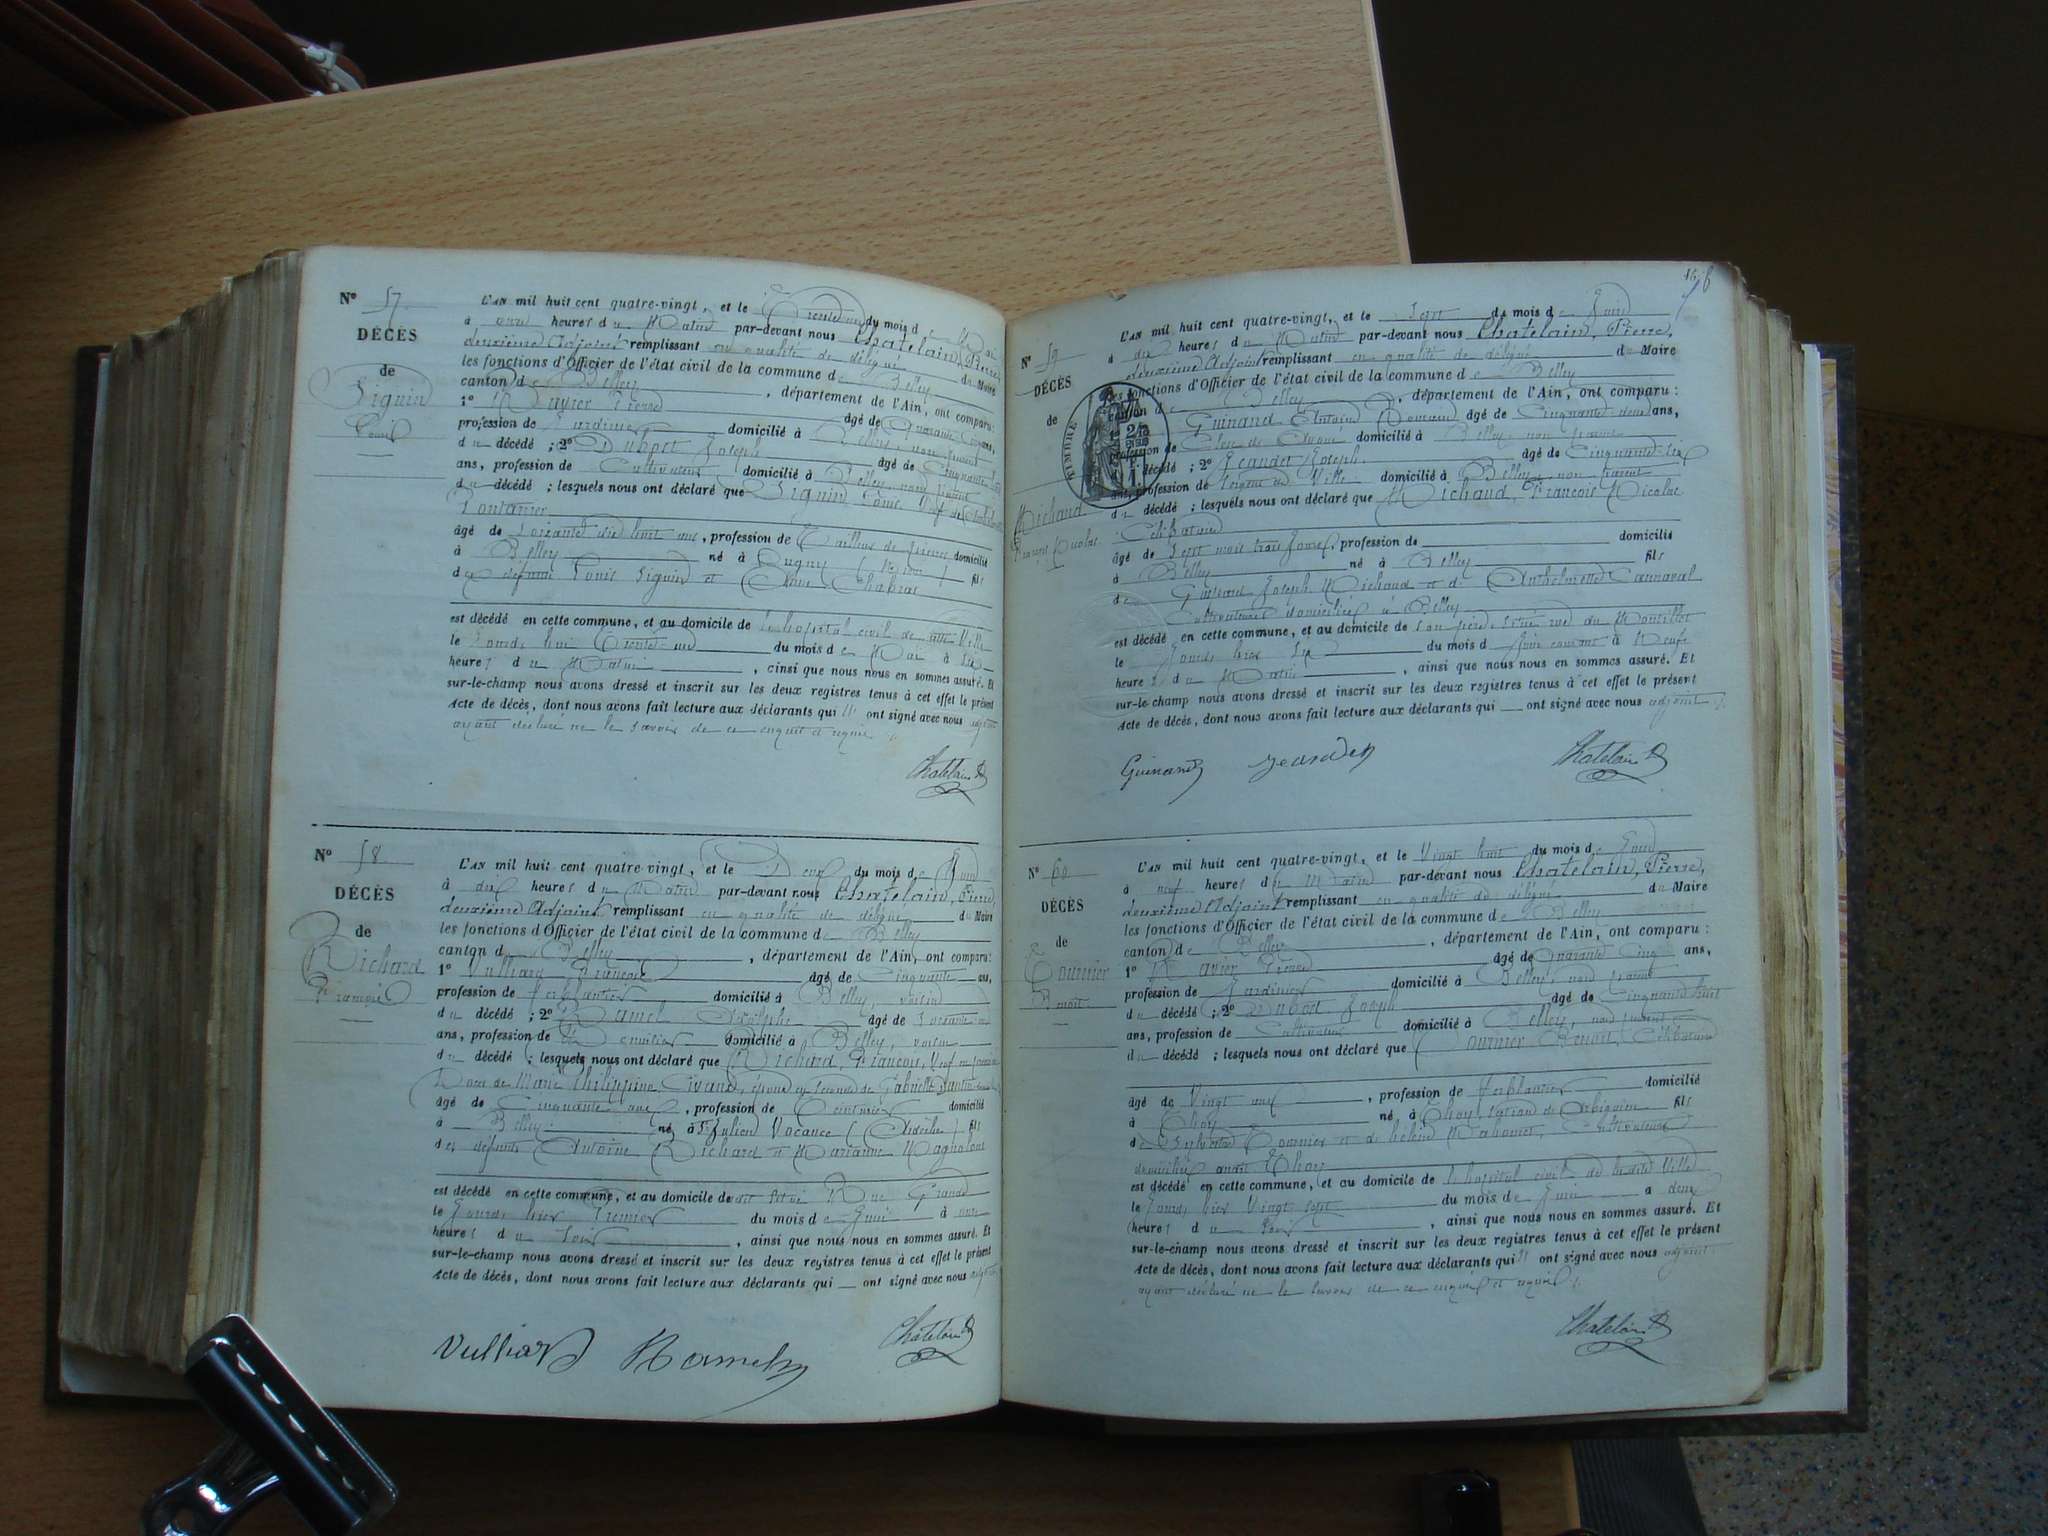 N° 57
DÉCÈS
de
Siguin
Louis
L'AN mil huit cent quatre-vingt, et le Trente un du mois de Mai
à onze heures du Matin par-devant nous Chatelain, Pierre,
deuxième Adjoint remplissant en qualité de délégué du Maire
les fonctions d'Officier de l'état civil de la commune de Belley
canton de Belley, département de l'Ain, ont comparu:
1° Ravier Pierre âgé de Quarante cinq ans,
profession de Jardinier domicilié à Belley, non parent
du décédé; 2° Dubort Joseph âgé de Cinquante
ans, profession de Cultivateur domicilié à Belley, non parent
du décédé; lesquels nous ont déclaré que Siguin Louis, Veuf de
Fontanier
âgé de Soixante dix huit ans, profession de Tailleur de pierres domicilié
à Belley né à Lugny fils
des défunts Louis Siguin et Chabrat
est décédé en cette commune, et au domicile de L'hopital civil de cette Ville
le Jourd'hui Trente-un du mois de Mai à Six
heures du Matin, ainsi que nous nous en sommes assuré. Et
sur-le-champ nous avons dressé et inscrit sur les deux registres tenus à cet effet le présent
Acte de décès, dont nous avons fait lecture aux déclarants qui n' ont signé avec nous adjoint
ayant déclaré ne le savoir de ce enquis et requis
Chatelain
N° 58
DÉCÈS
de
Richard
François
L'AN mil huit cent quatre-vingt, et le Deux du mois de Juin
à dix heures du Matin par-devant nous Chatelain, Pierre,
deuxième Adjoint remplissant en qualité de délégué du Maire
les fonctions d'Officier de l'état civil de la commune de Belley
canton de Belley, département de l'Ain, ont comparu:
1° Vulliard François âgé de Cinquante ans,
profession de ferblantier domicilié à Belley, voisin
du décédé; 2° Ramel Adolphe âgé de Soixante
ans, profession de domicilié à Belley, voisin
du décédé; lesquels nous ont déclaré que Richard, François, Veuf en premières
Noces de Marie Philippine époux en secondes de Gabrielle
âgé de Cinquante ans, profession de Teinturier domicilié
à Belley né à St Julien Vocance (Ardèche) fils
des défunts Antoine Richard et Marianne Magnolon
est décédé en cette commune, et au domicile de Rue Grande
le Jourd'hier Premier du mois de Juin à onze
heures du Soir, ainsi que nous nous en sommes assuré. Et
sur-le-champ nous avons dressé et inscrit sur les deux registres tenus à cet effet le présent
Acte de décès, dont nous avons fait lecture aux déclarants qui — ont signé avec nous adjoint
Vulliard Ramel Chatelain
N° 59
DÉCÈS
de
Michaud
François Nicolas
L'AN mil huit cent quatre-vingt, et le Sept du mois de Juin
à dix heures du Matin par-devant nous Chatelain, Pierre,
deuxième Adjoint remplissant en qualité de délégué du Maire
les fonctions d'Officier de l'état civil de la commune de Belley
canton de Belley, département de l'Ain, ont comparu:
Guinand Antoine Romain âgé de Cinquante deux ans,
profession de Clerc de Avoué domicilié à Belley, non parent
du décédé; 2° Jeandet Joseph âgé de Cinquante-six
ans, profession de Sergent de Ville domicilié à Belley, non parent
du décédé; lesquels nous ont déclaré que Michaud, François Nicolas
Célibataire
âgé de Sept mois trois Jours, profession de domicilié
à Belley né à Belley fils
de Joseph Michaud et de Anthelmette
Cultivateurs domiciliés à Belley
est décédé en cette commune, et au domicile de son père, situé rue du
le Jourd'hier Six du mois de Juin courant à Neuf
heures du Matin, ainsi que nous nous en sommes assuré. Et
sur-le-champ nous avons dressé et inscrit sur les deux registres tenus à cet effet le présent
Acte de décès, dont nous avons fait lecture aux déclarants qui — ont signé avec nous adjoint
Guinand Jeandet Chatelain
N° 60
DÉCÈS
de
Tournier
Benoit
L'AN mil huit cent quatre-vingt, et le Vingt huit du mois de Juin
à neuf heures du Matin par-devant nous Chatelain, Pierre,
deuxième Adjoint remplissant en qualité de délégué du Maire
les fonctions d'Officier de l'état civil de la commune de Belley
canton de Belley, département de l'Ain, ont comparu:
1° Ravier Pierre âgé de Quarante Cinq ans,
profession de Jardinier domicilié à Belley, non parent
du décédé; 2° Dubort Joseph âgé de Cinquante huit
ans, profession de Cultivateur domicilié à Belley, non parent
du décédé; lesquels nous ont déclaré que Tournier Benoit, Célibataire
âgé de Vingt ans, profession de ferblantier domicilié
à Thoy né à Thoy, fils
de Tournier et de hélène Mahomet, Cultivateurs
domiciliés audit Thoy
est décédé en cette commune, et au domicile de L'hopital civil de ladite Ville
le Jourd'hier Vingt sept du mois de Juin à deux
heures du Soir, ainsi que nous nous en sommes assuré. Et
sur-le-champ nous avons dressé et inscrit sur les deux registres tenus à cet effet le présent
Acte de décès, dont nous avons fait lecture aux déclarants qui n' ont signé avec nous adjoint
ayant déclaré ne le savoir de ce enquis et requis
Chatelain